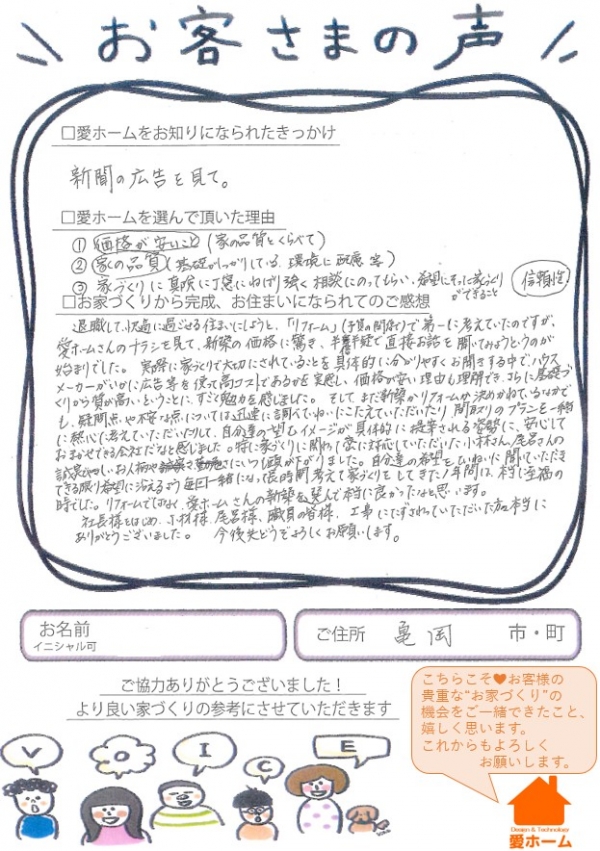 お客さまの声
□愛ホームをお知りになられたきっかけ
新聞の広告を見て。
□愛ホームを選んで頂いた理由
① 価格が安いこと (家の品質とくらべて)
② 家の品質 (基礎がしっかりしている、環境に配慮 等)
③ 家づくりに真摯に丁寧にねばり強く相談にのってもらい、希望にそった家づくりができること
信頼性
□お家づくりから完成、お住まいになられてのご感想
退職して、快適に過ごせる住まいにしようと、「リフォーム」(予算の関係)で第一に考えていたのですが、
愛ホームさんのチラシを見て、新築の価格に驚き、半信半疑で直接お話を聞いてみようというのが
始まりでした。実際に家づくりで大切にされていることを具体的に分かりやすくお聞きする中で、ハウス
メーカーがいかに広告等を使って高コストであるかを実感し、価格が安い理由も理解でき、さらに基礎づ
くりから質が高いということに、すごく魅力を感じました。そしてまだ新築かリフォームか決めかねているなかで
も、疑問点や不安な点については迅速に調べていねいにこたえていただいたり、間取りのプランを一緒
に熱心に考えていただいたりして、自分達の望むイメージが具体的に提案される姿勢に、安心して
おまかせできる会社だなと感じました。特に家づくりに関わって常に対応していただいた小林さん、尾呂さんの
誠実なお人柄にいつも頭が下がりました。自分達の希望をていねいに聞いていただき
できる限り希望に添えるよう毎回一緒になって長時間考えて家づくりをしてきた1年間は、本当に至福の
時でした。リフォームではなく、愛ホームさんの新築を選んで本当に良かったなと思います。
社長様をはじめ、小林様、尾呂様、職員の皆様、工事にたずさわっていただいた方々本当に
ありがとうございました。 今後共どうぞよろしくお願いします。
お名前
イニシャル可
ご住所 亀岡 市・町
ご協力ありがとうございました！
より良い家づくりの参考にさせていただきます
こちらこそ♥お客様の
貴重な“お家づくり”の
機会をご一緒できたこと、
嬉しく思います。
これからもよろしく
お願いします。
VOICE
Design & Technology
愛ホーム